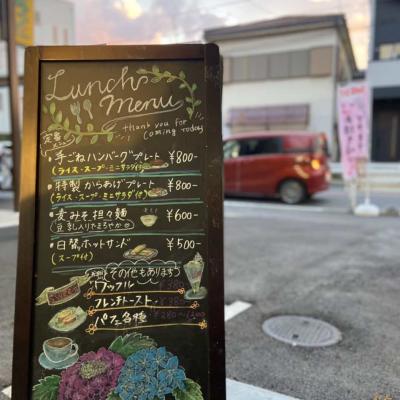 Lunch menu
Thank you for
coming today
定番
・手ごねハンバーグプレート ¥800-
(ライス・スープ・ミニサラダ付)
・特製からあげプレート ¥800-
(ライス・スープ・ミニサラダ付)
・麦みそ担々麺 ¥600-
豆乳入りでまろやか
・日替ホットサンド ¥500-
(スープ付)
その他もあります
ワッフル ¥380-
フレンチトースト ¥380-
パフェ各種 ¥280〜